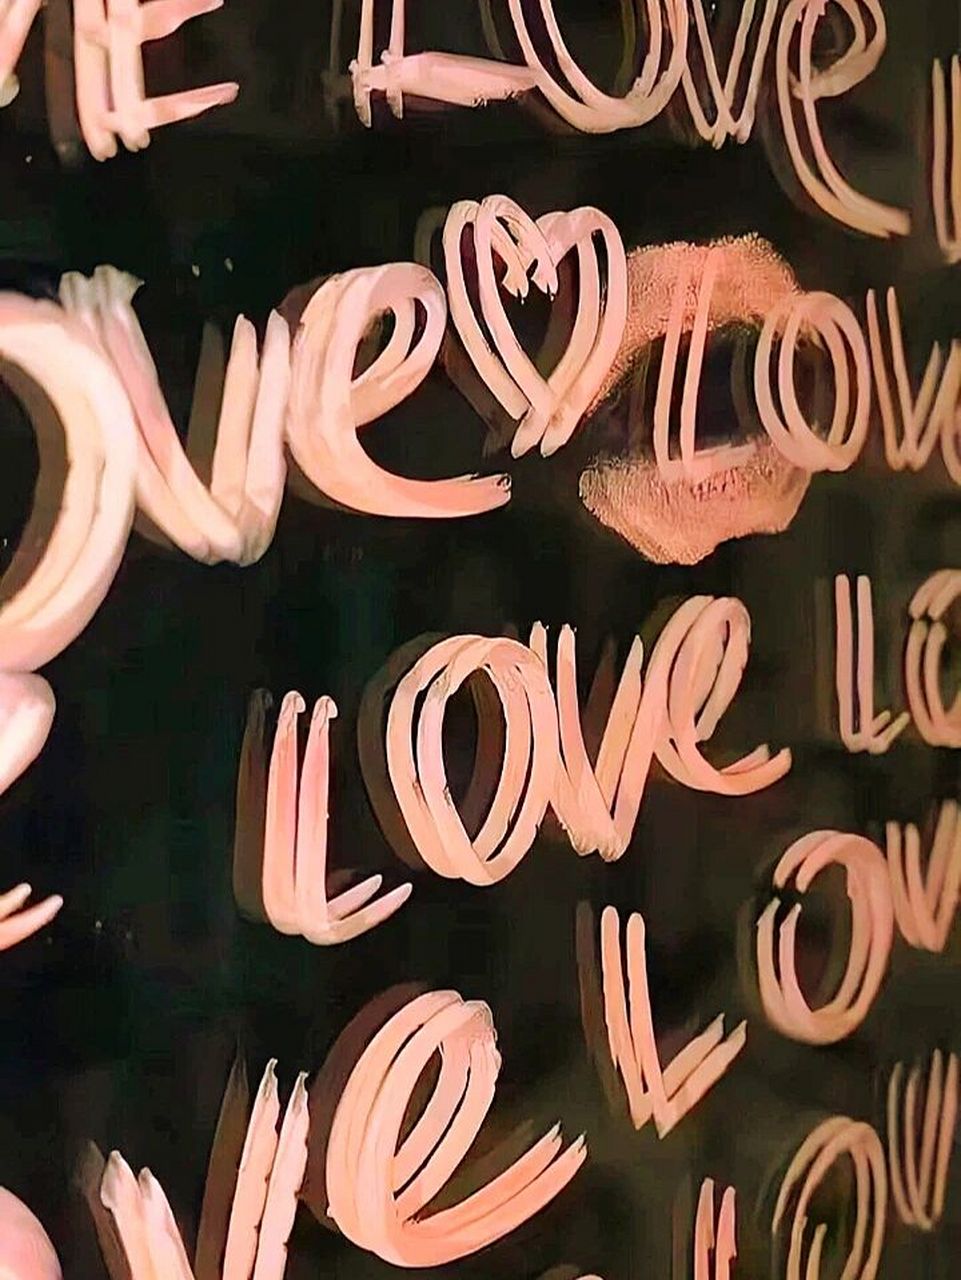 E Love
ove Love
Love Lo
Lov
ve Lov